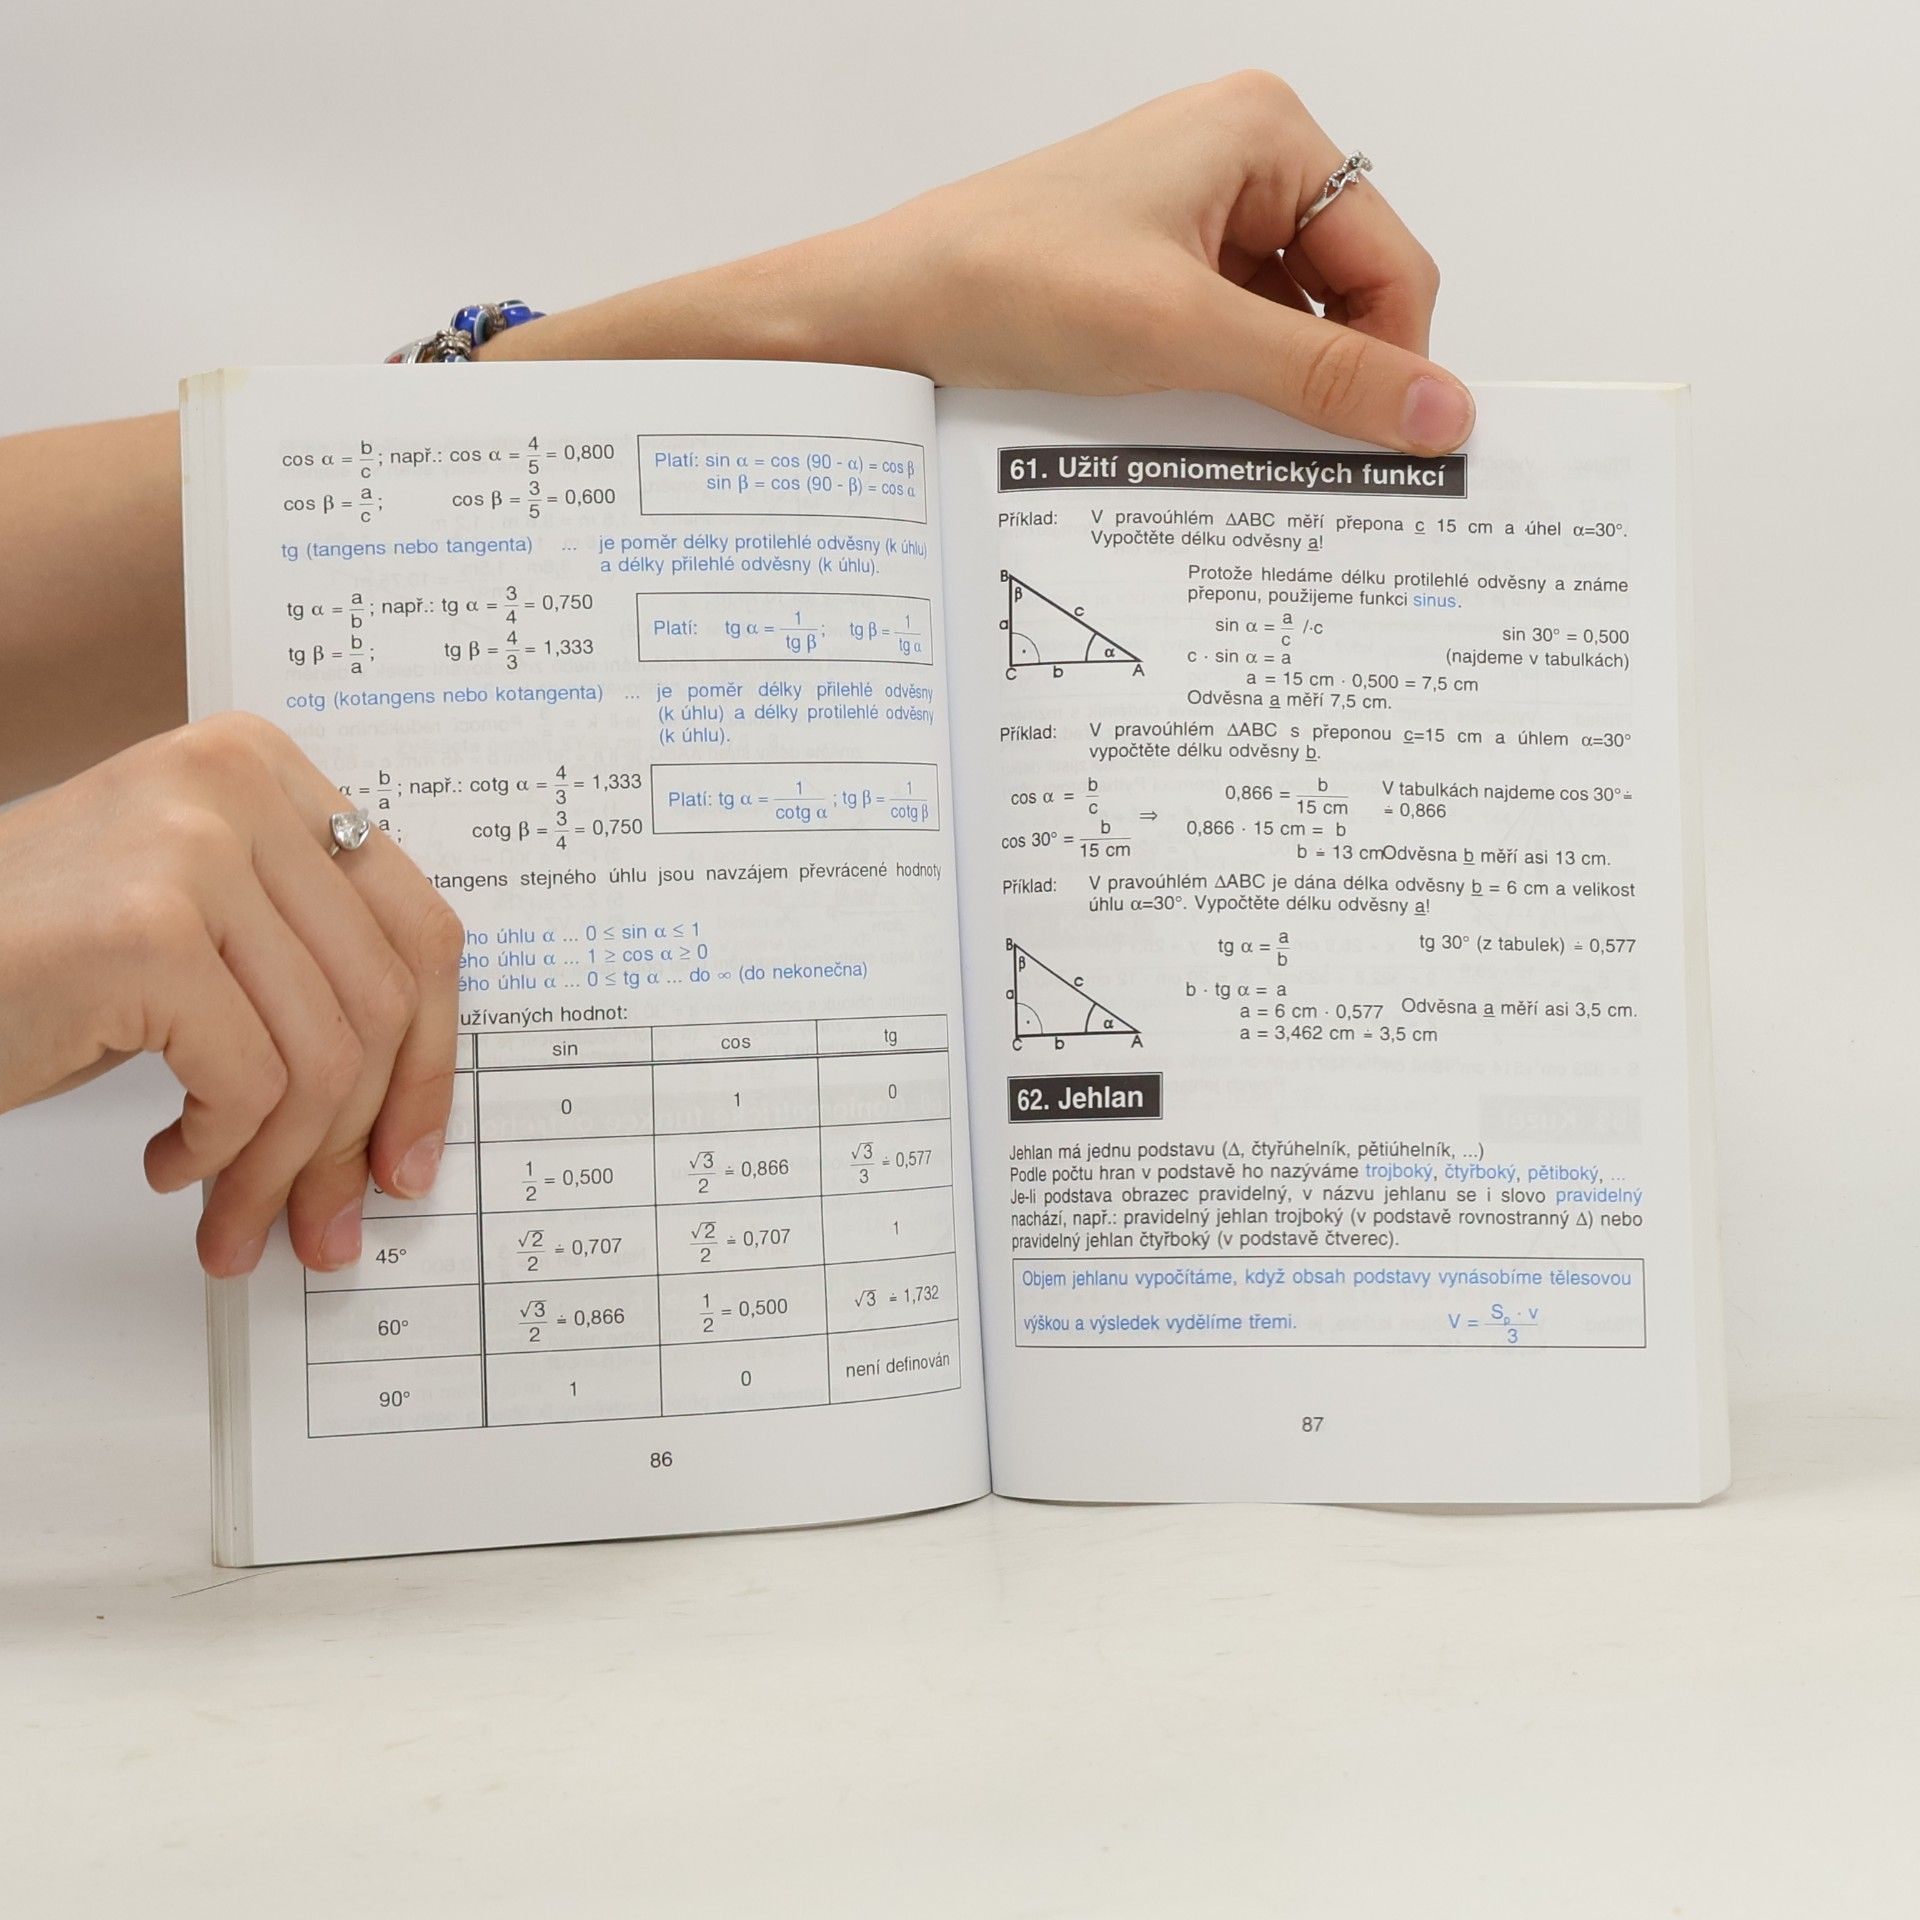 cos α = b/c ; např.: cos α = 4/5 = 0,800
cos β = a/c ; cos β = 3/5 = 0,600
Platí: sin α = cos (90 - α) = cos β
sin β = cos (90 - β) = cos α
tg (tangens nebo tangenta) ... je poměr délky protilehlé odvěsny (k úhlu)
a délky přilehlé odvěsny (k úhlu).
tg α = a/b ; např.: tg α = 3/4 = 0,750
tg β = b/a ; tg β = 4/3 = 1,333
Platí: tg α = 1/tg β ; tg β = 1/tg α
cotg (kotangens nebo kotangenta) ... je poměr délky přilehlé odvěsny
(k úhlu) a délky protilehlé odvěsny
(k úhlu).
α = b/a ; např.: cotg α = 4/3 = 1,333
a ; cotg β = 3/4 = 0,750
Platí: tg α = 1/cotg α ; tg β = 1/cotg β
stejného úhlu jsou navzájem převrácené hodnoty
úhlu α ... 0 ≤ sin α ≤ 1
úhlu α ... 1 ≥ cos α ≥ 0
úhlu α ... 0 ≤ tg α ... do ∞ (do nekonečna)
užívaných hodnot:
sin cos tg
0 1 0
1/2 = 0,500 √3/2 ≐ 0,866 √3/3 ≐ 0,577
45° √2/2 ≐ 0,707 √2/2 ≐ 0,707 1
60° √3/2 ≐ 0,866 1/2 = 0,500 √3 ≐ 1,732
90° 1 0 není definován
86
61. Užití goniometrických funkcí
Příklad: V pravoúhlém ΔABC měří přepona c 15 cm a úhel α=30°.
Vypočtěte délku odvěsny a!
B β a c α C b A
Protože hledáme délku protilehlé odvěsny a známe
přeponu, použijeme funkci sinus.
sin α = a/c /·c sin 30° = 0,500
c · sin α = a (najdeme v tabulkách)
a = 15 cm · 0,500 = 7,5 cm
Odvěsna a měří 7,5 cm.
Příklad: V pravoúhlém ΔABC s přeponou c=15 cm a úhlem α=30°
vypočtěte délku odvěsny b.
cos α = b/c 0,866 = b/15 cm V tabulkách najdeme cos 30° ≐
≐ 0,866
cos 30° = b/15 cm ⇒ 0,866 · 15 cm = b
b ≐ 13 cmOdvěsna b měří asi 13 cm.
Příklad: V pravoúhlém ΔABC je dána délka odvěsny b = 6 cm a velikost
úhlu α=30°. Vypočtěte délku odvěsny a!
B β a c α C b A
tg α = a/b tg 30° (z tabulek) ≐ 0,577
b · tg α = a
a = 6 cm · 0,577 Odvěsna a měří asi 3,5 cm.
a = 3,462 cm ≐ 3,5 cm
62. Jehlan
Jehlan má jednu podstavu (Δ, čtyřúhelník, pětiúhelník, ...)
Podle počtu hran v podstavě ho nazýváme trojboký, čtyřboký, pětiboký, ...
Je-li podstava obrazec pravidelný, v názvu jehlanu se i slovo pravidelný
nachází, např.: pravidelný jehlan trojboký (v podstavě rovnostranný Δ) nebo
pravidelný jehlan čtyřboký (v podstavě čtverec).
Objem jehlanu vypočítáme, když obsah podstavy vynásobíme tělesovou
výškou a výsledek vydělíme třemi. V = Sp · v/3
87